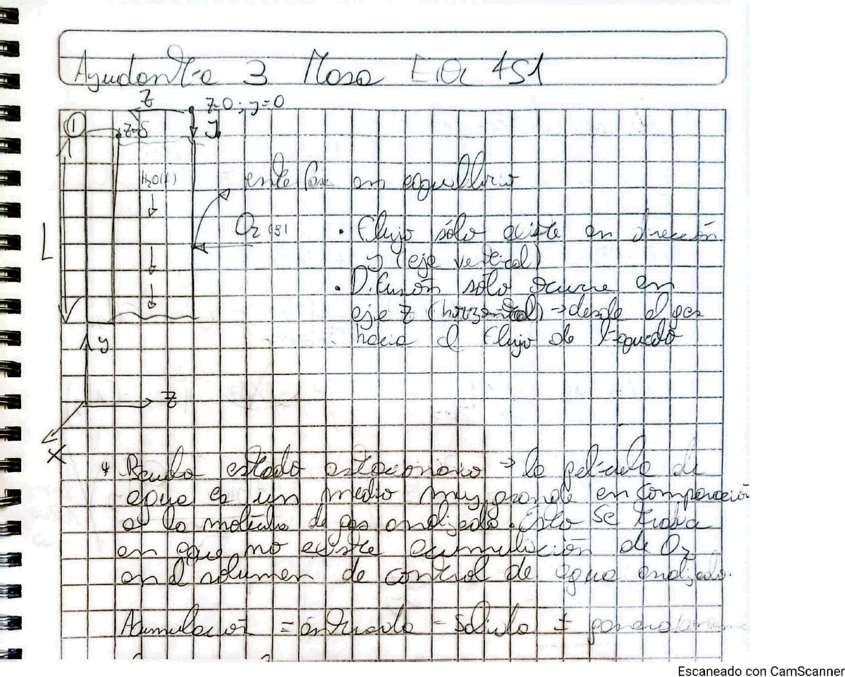 Ayudantía 3 Masa EIQ 451
z
z=0; y=0
①
z=δ
y
H2O(l)
interfase en equilibrio
L
O2 (g)
• Flujo sólo existe en dirección
y (eje vertical)
• Difusión sólo ocurre en
eje z (horizontal) → desde el gas
hacia el flujo de líquido
y
z
x
* Pseudo estado estacionario → la película de
agua es un medio muy grande en comparación
a la molécula de gas analizada. Sólo se traba
en que no existe acumulación de O2
en el volumen de control de agua analizado.
Acumulación = entrada - salida ±
Escaneado con CamScanner